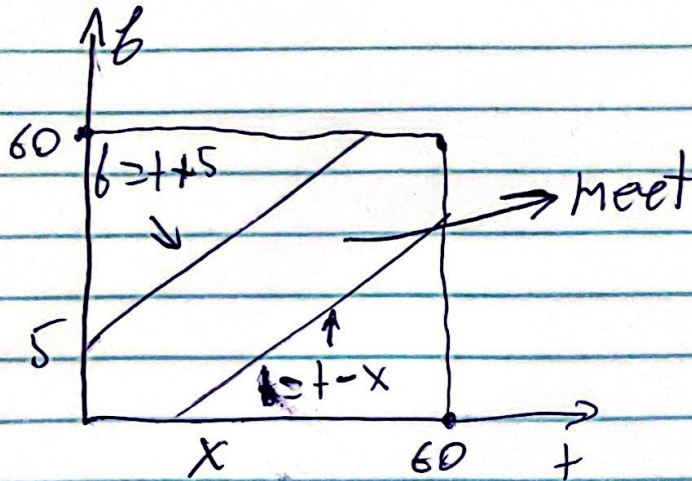 b
60
b=t+5
meet
5
b=t-x
x
60
t